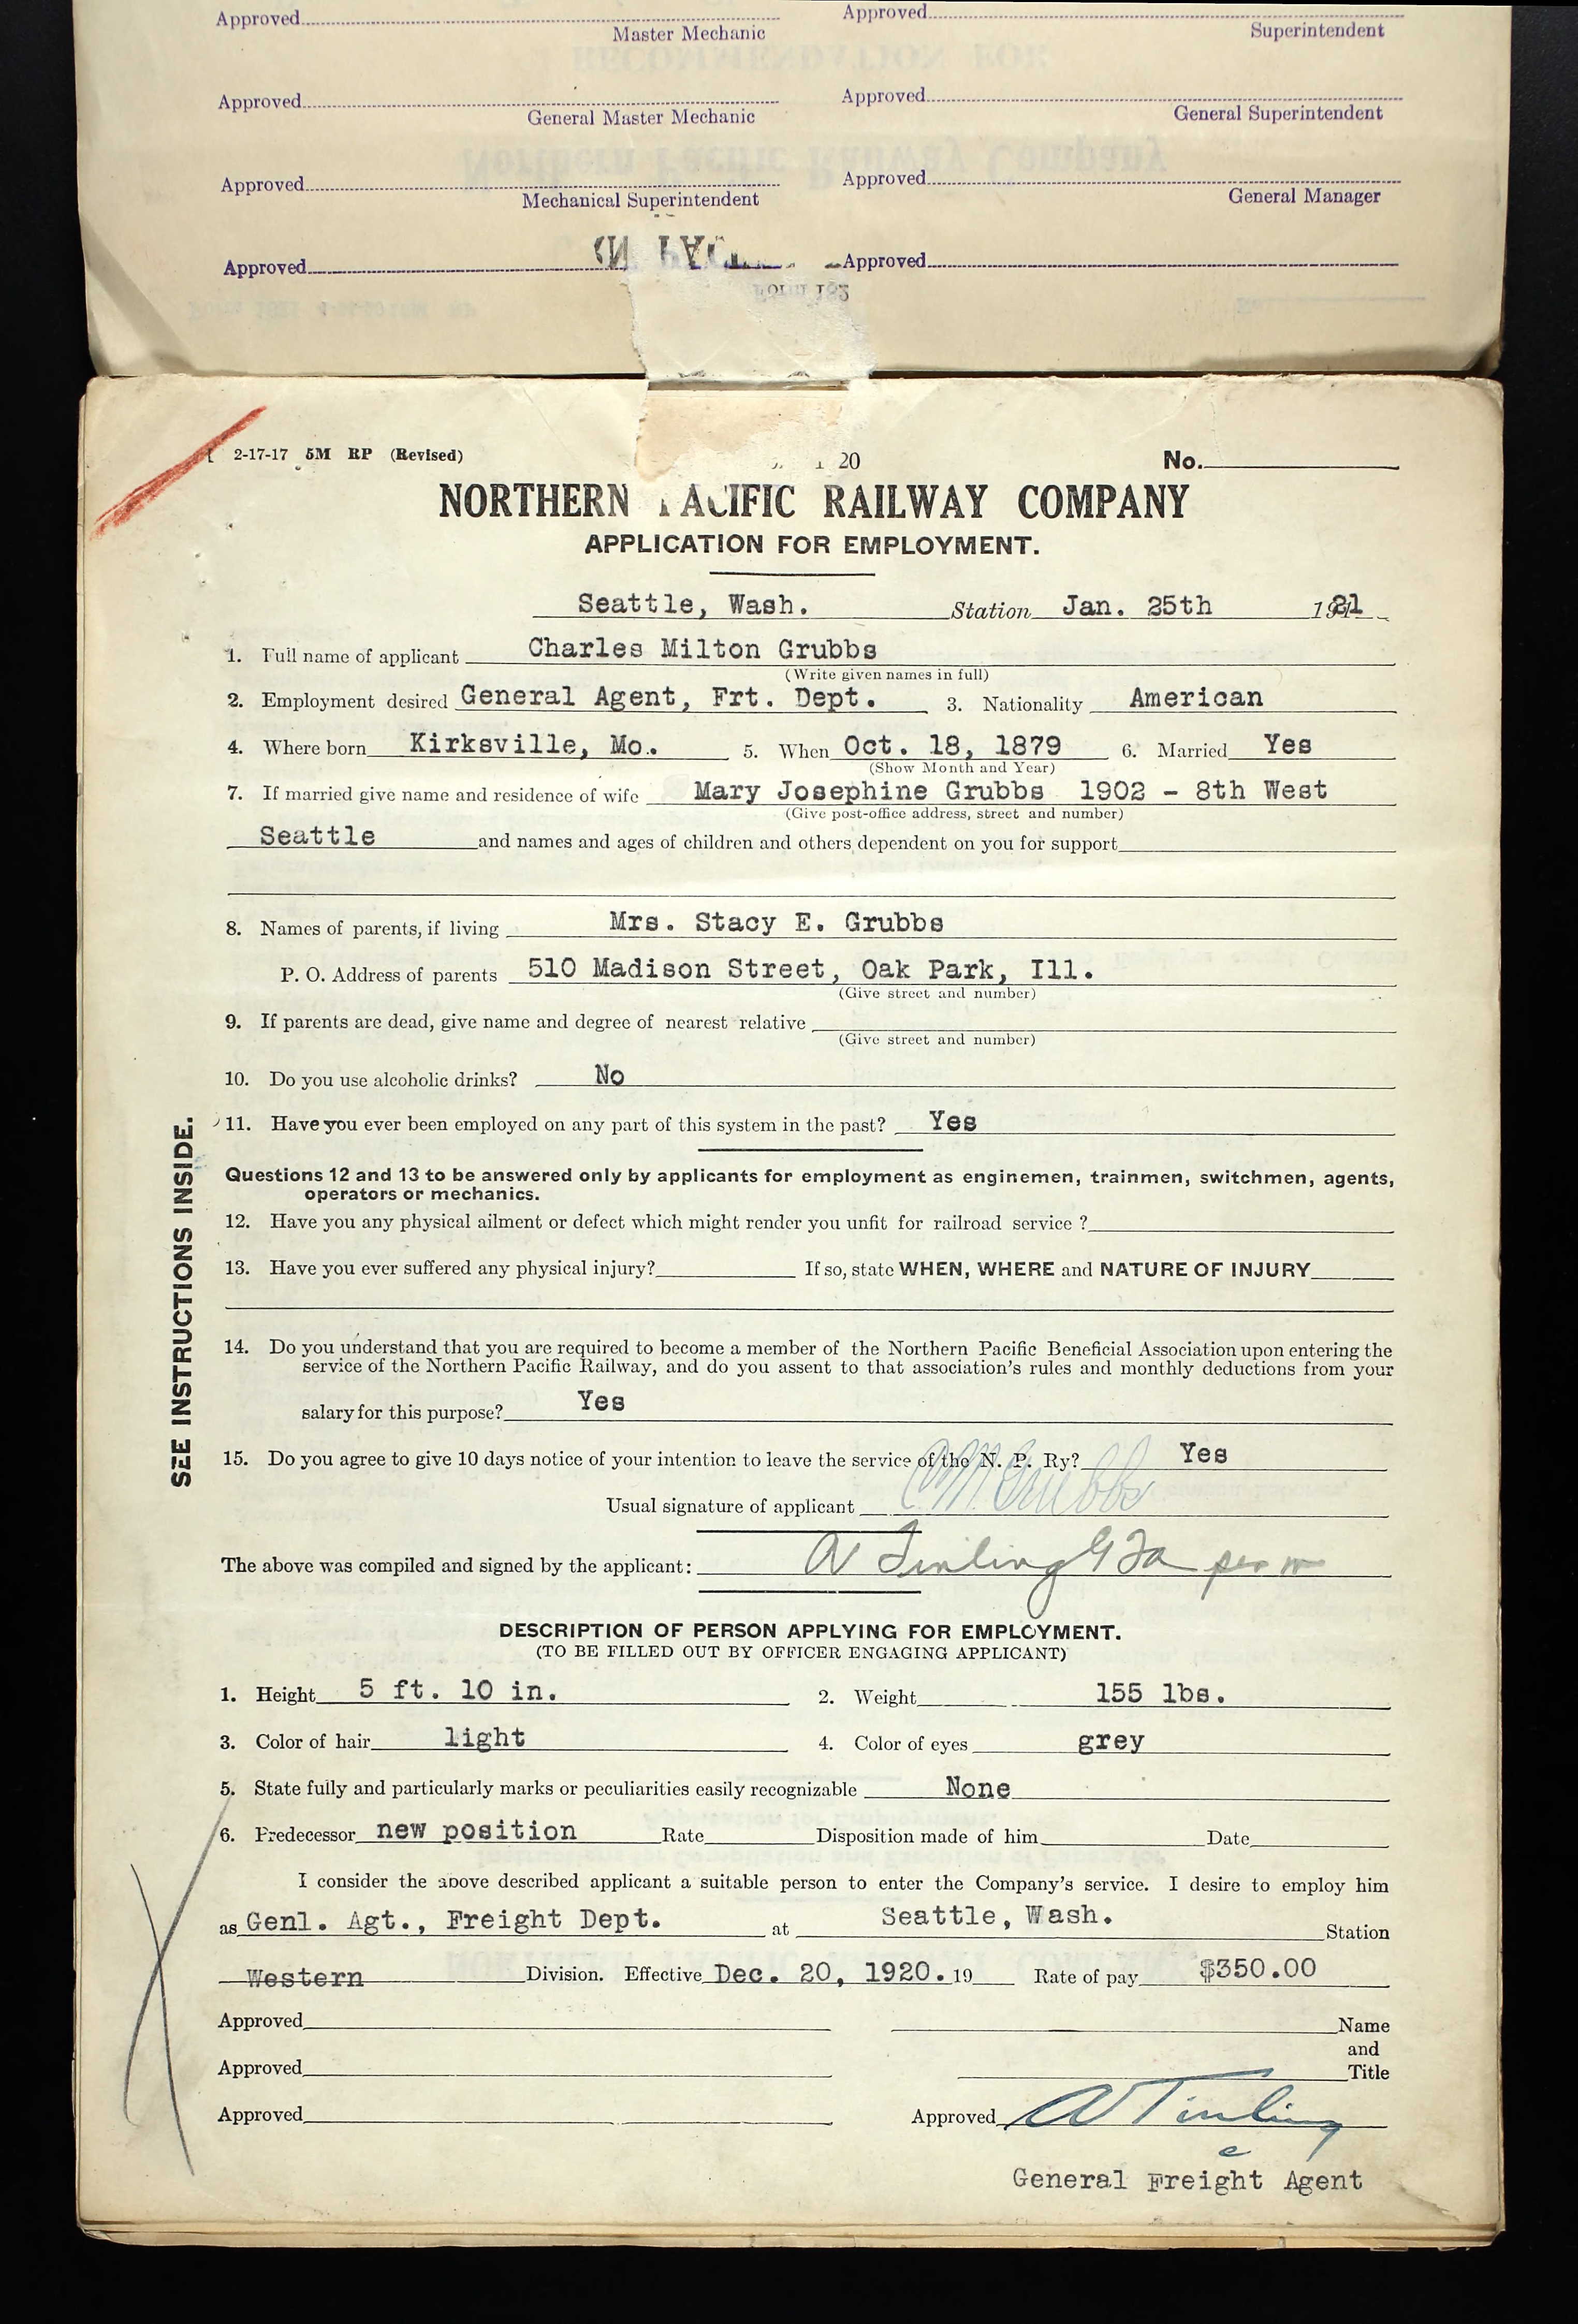 Approved Approved
Master Mechanic Superintendent
Approved Approved
General Master Mechanic General Superintendent
Approved Approved
Mechanical Superintendent General Manager
Approved Approved
2-17-17 5M RP (Revised) No.
NORTHERN PACIFIC RAILWAY COMPANY
APPLICATION FOR EMPLOYMENT.
Seattle, Wash. Station Jan. 25th 1921
1. Full name of applicant Charles Milton Grubbs
(Write given names in full)
2. Employment desired General Agent, Frt. Dept. 3. Nationality American
4. Where born Kirksville, Mo. 5. When Oct. 18, 1879 6. Married Yes
(Show Month and Year)
7. If married give name and residence of wife Mary Josephine Grubbs 1902 - 8th West
(Give post-office address, street and number)
Seattle and names and ages of children and others dependent on you for support
8. Names of parents, if living Mrs. Stacy E. Grubbs
P. O. Address of parents 510 Madison Street, Oak Park, Ill.
(Give street and number)
9. If parents are dead, give name and degree of nearest relative
(Give street and number)
10. Do you use alcoholic drinks? No
11. Have you ever been employed on any part of this system in the past? Yes
Questions 12 and 13 to be answered only by applicants for employment as enginemen, trainmen, switchmen, agents,
operators or mechanics.
12. Have you any physical ailment or defect which might render you unfit for railroad service ?
13. Have you ever suffered any physical injury? If so, state WHEN, WHERE and NATURE OF INJURY
14. Do you understand that you are required to become a member of the Northern Pacific Beneficial Association upon entering the
service of the Northern Pacific Railway, and do you assent to that association's rules and monthly deductions from your
salary for this purpose? Yes
15. Do you agree to give 10 days notice of your intention to leave the service of the N. P. Ry? Yes
Usual signature of applicant C M Grubbs
The above was compiled and signed by the applicant: A Tinling G F a per
SEE INSTRUCTIONS INSIDE.
DESCRIPTION OF PERSON APPLYING FOR EMPLOYMENT.
(TO BE FILLED OUT BY OFFICER ENGAGING APPLICANT)
1. Height 5 ft. 10 in. 2. Weight 155 lbs.
3. Color of hair light 4. Color of eyes grey
5. State fully and particularly marks or peculiarities easily recognizable None
6. Predecessor new position Rate Disposition made of him Date
I consider the above described applicant a suitable person to enter the Company's service. I desire to employ him
as Genl. Agt., Freight Dept. at Seattle, Wash. Station
Western Division. Effective Dec. 20, 1920. 19 Rate of pay $350.00
Approved Name
and
Approved Title
Approved Approved A Tinling
General Freight Agent